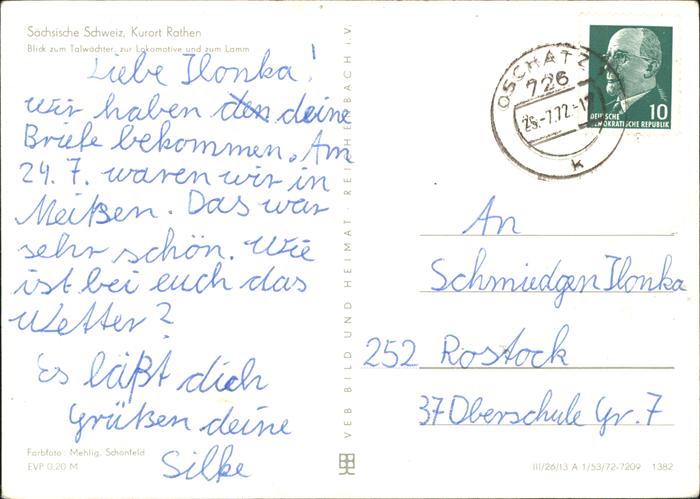 Sächsische Schweiz, Kurort Rathen
Blick zum Talwächter, zur Lokomotive und zum Lamm
Liebe Ilonka!
Wir haben den deine
Briefe bekommen. Am
24. 7. waren wir in
Meißen. Das war
sehr schön. Wie
ist bei euch das
Wetter?
Es läßt dich
Grüßen deine
Silke
Farbfoto: Mehlig, Schönfeld
EVP 0,20 M
VEB BILD UND HEIMAT · REICHENBACH i. V.
OSCHATZ
726
25.-7.72.-17
k
10
DEUTSCHE
DEMOKRATISCHE REPUBLIK
An
Schmiedgen Ilonka
252 Rostock
37 Oberschule Gr. 7
III/26/13 A 1/53/72-7209 1382